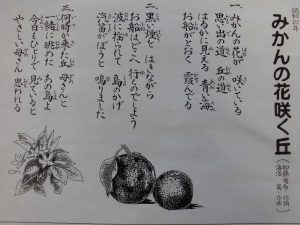 昭和21年
みかんの花咲く丘
(加藤省吾・作詞
海沼 実・作曲)
一、みかんの花が 咲いている
思い出の道 丘の道
はるかに見える 青い海
お船がとおく 霞んでる
二、黒い煙を はきながら
お船はどこへ 行くのでしょう
波に揺られて 島のかげ
汽笛がぼうと 鳴りました
三、何時か来た丘 母さんと
一緒に眺めた あの島よ
今日もひとりで 見ていると
やさしい母さん 思われる